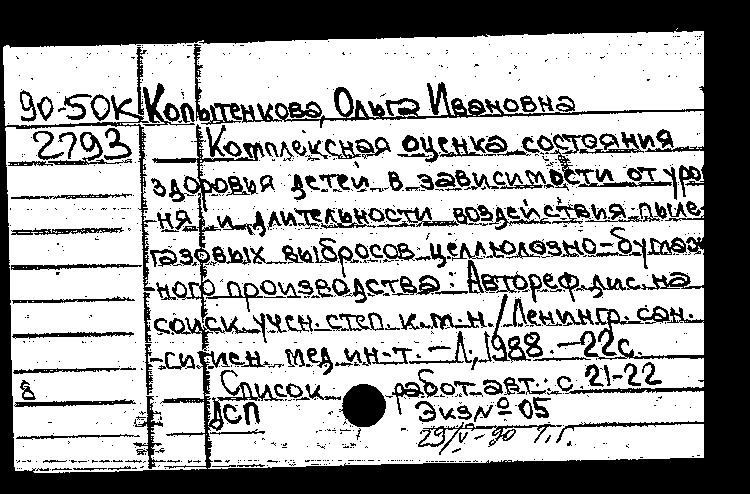 90-50К Копытенкова, Ольга Ивановна
2793 Комплексная оценка состояния
здоровья детей в зависимости от уров
-ня и длительности воздействия пыле-
газовых выбросов целлюлозно-бумаж
-ного производства: Автореф. дис. на
соиск. учен. степ. к.м.н. / Ленингр. сан.
-гигиен. мед. ин-т. — Л., 1988. — 22с.
8 Список работ авт.: с. 21-22
ДСП Экз № 05
29/V-90